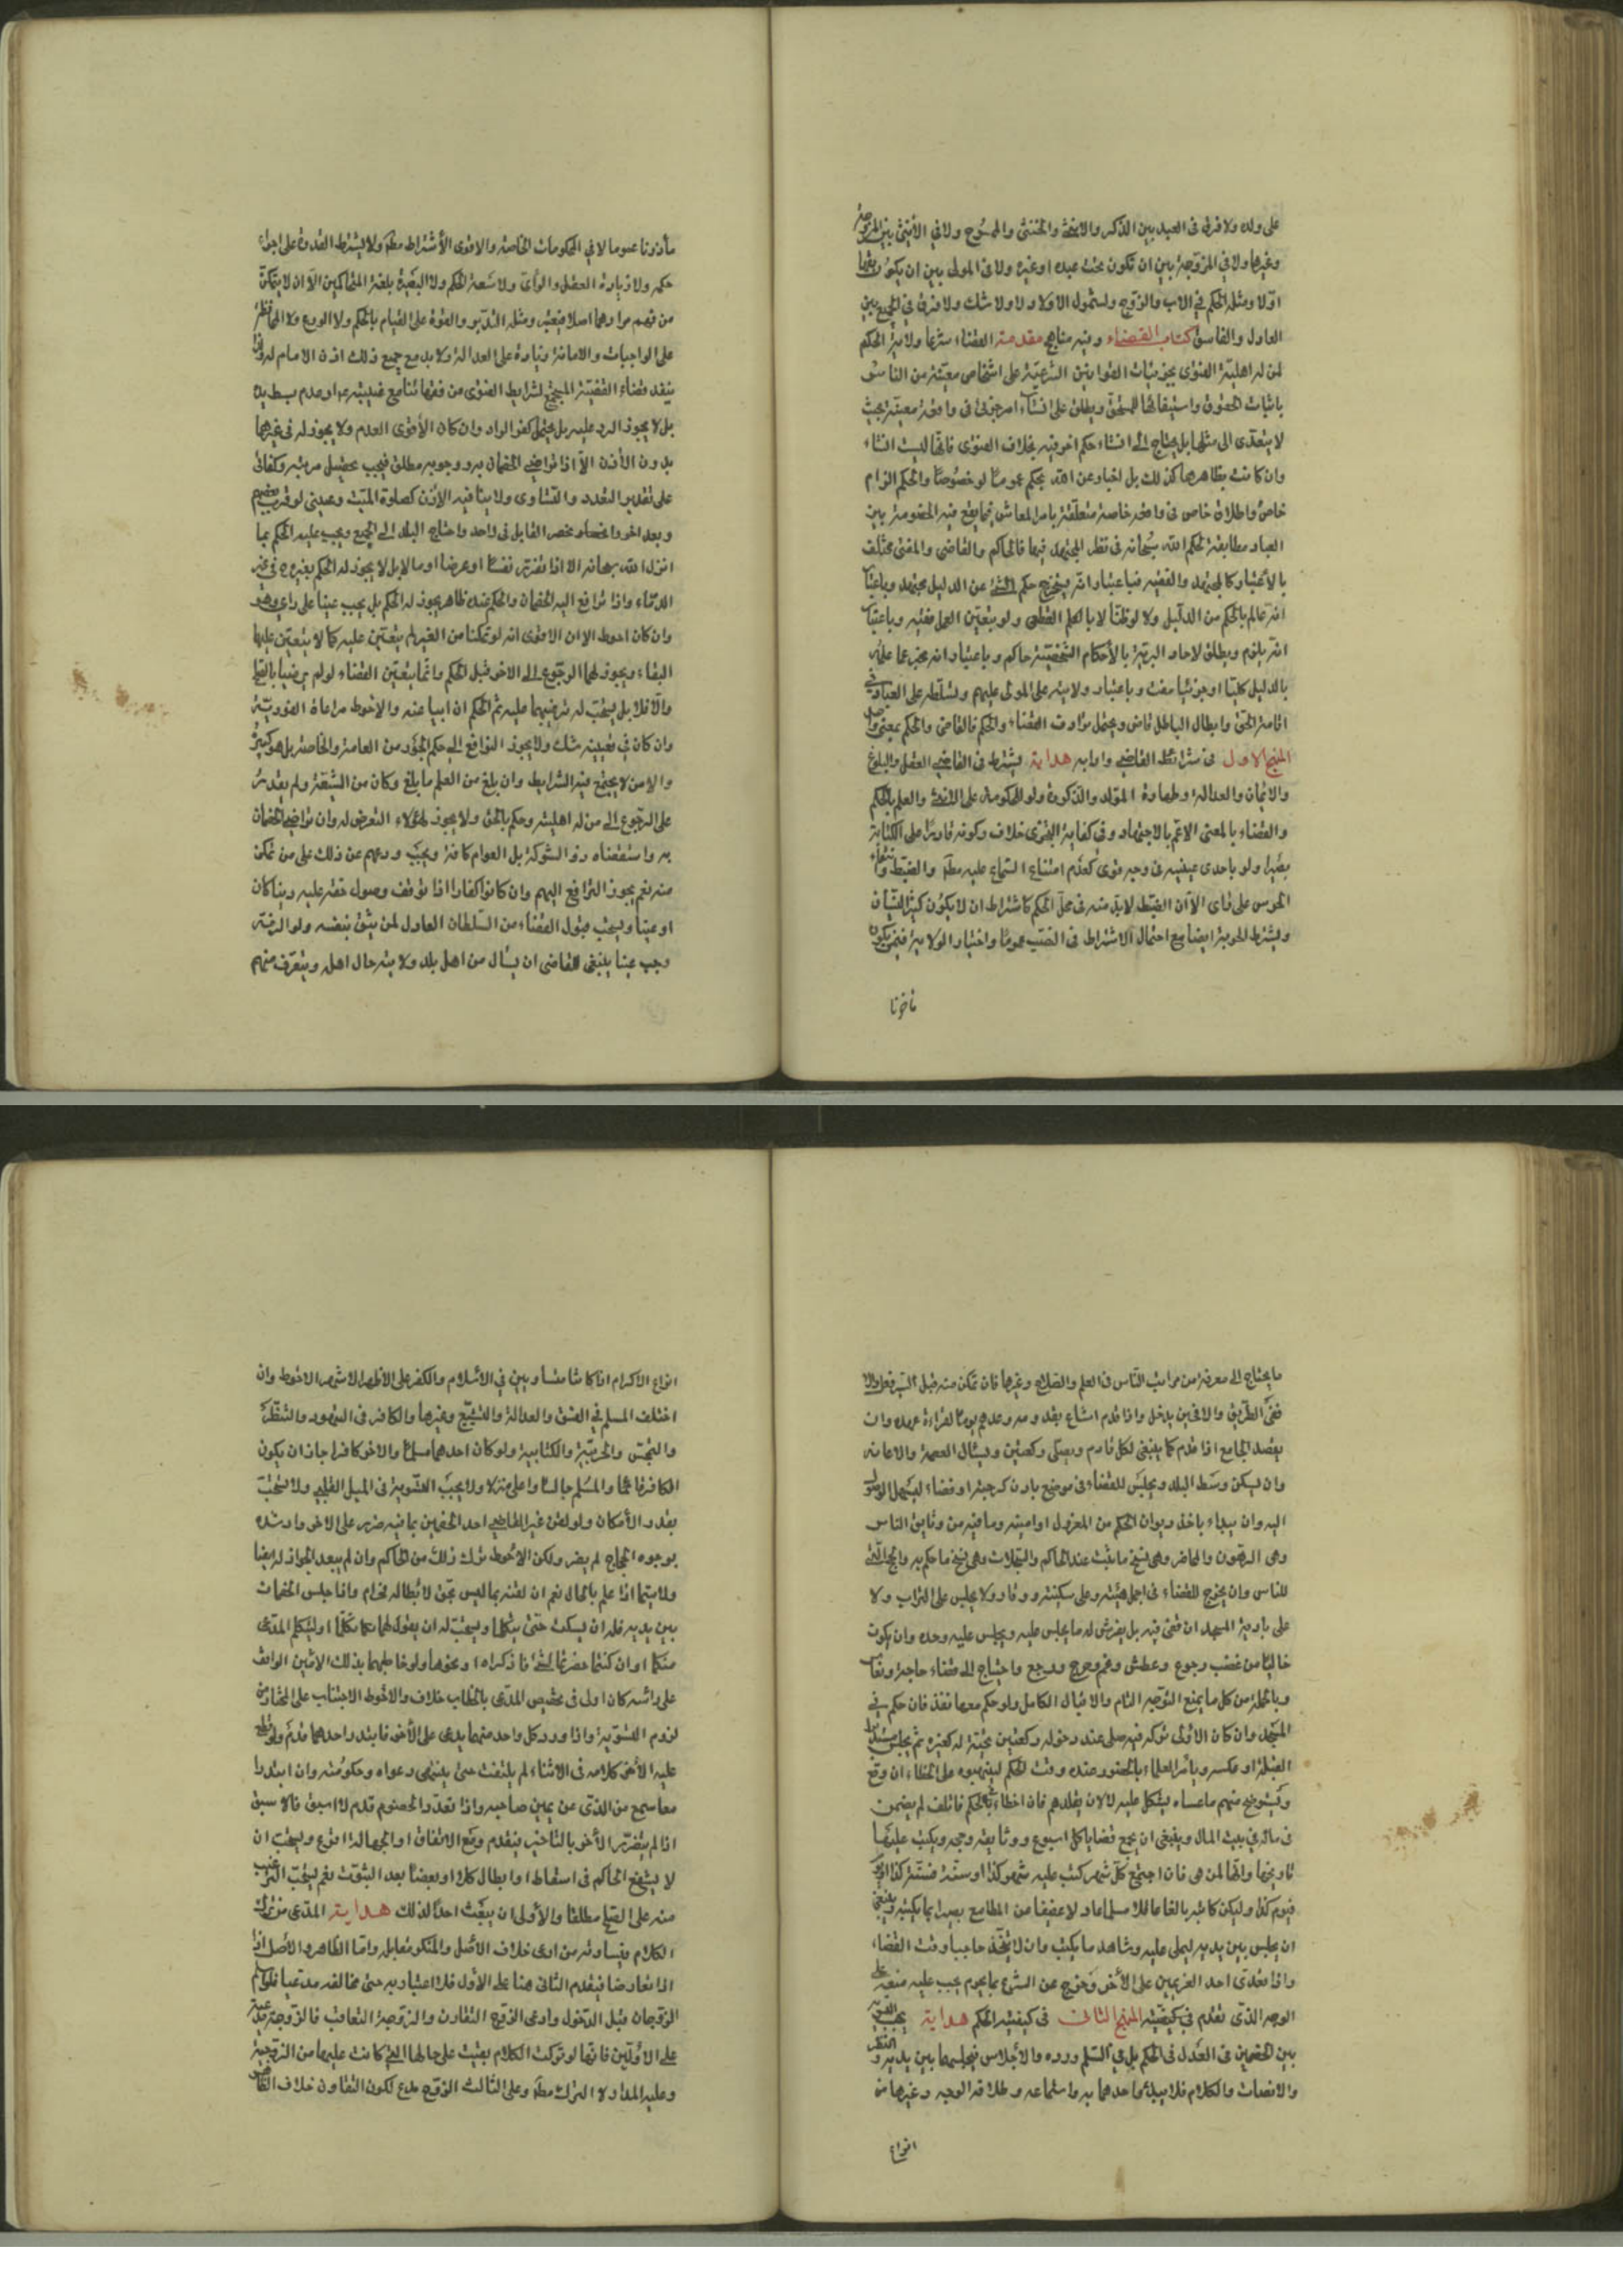 على ولده ولا فرق فى العبد بين الذكر والانثى والخنثى والممسوح ولا في الأنثى بين المزوجة
وغيرها ولا في المزوجة بين ان تكون تحت عبده او غيره ولا فى المولى بين ان يكون
اولا ومثله الحكم في الاب والزوج ولشمول الاولاد ولا شك ولا فرق في الجميع بين
العادل والفاسق كتاب القضاء وفيه مناهج مقدمة القضاء شرعا ولاية الحكم
لمن له اهلية الفتوى بجزئيات القوانين الشرعية على اشخاص معينة من الناس
باثبات الحقوق واستيفائها للمستحق ويطلق على انشاء امر جزئى فى واقعة معينة بحيث
لا يتعدى الى مثلها بل يحتاج الى انشاء حكم اخر فيه بخلاف الفتوى فانها ليست انشاء
وان كانت بظاهرها كذلك بل اخبار عن الله بحكم عموما او خصوصا والحكم الزام
خاص واطلاق خاص فى واقعة خاصة متعلقة بامر المعاش فيما يقع فيه الخصومة بين
العباد مطابقة لحكم الله سبحانه فى نظر المجتهد فيها فالحاكم والقاضى والمفتى مختلف
بالأعتبار كالمجتهد والفقيه فباعتبار انه يخرج حكم الشئ عن الدليل مجتهد وباعتبار
انه عالم بالحكم من الدليل ولا لو ظنا لا بالعلم القطعى ولو بتعين العمل فقيه وباعتبار
انه يلزم ويطلق لاحاد البرية بالأحكام الشخصية حاكم وباعتبار انه يخبر عما علمه
بالدليل كليا او جزئيا مفت وباعتبار ولايته على المولى عليهم وتسلطه على العباد في
اقامة الحق وابطال الباطل قاض ويحتمل ترادف القضاء والحكم فالقاضى والحكم بمعنى واحد
المنهج الاول فى شرائط القاضي وادابه هداية يشترط فى القاضي العقل والبلوغ
والايمان والعدالة وطهارة المولد والذكورة ولو للحكومة على الانثى والعلم بالحكم
والقضاء بالمعنى الاعم بالاجتهاد وفي كفاية التجزى خلاف وكونه قادرا على الكتابة
بصيرا ولو باحدى عينيه فى وجه قوى كعدم امتناع السماع عليه مطلقا والضبط وانتفاء
الخرس على راى الا ان الضبط لابد منه فى محل الحكم كاشتراط ان لا يكون كثير النسيان
ويشترط الحرية ايضا مع احتمال الاشتراط فى النصب عموما واختيار الولاية فيمن يكون
ماذونا
مأذونا عموما لا في الحكومات الخاصة والاقوى الأشتراط مطلقا ولا يشترط القدرة على اجراء
حكمه ولا زيادة العقل والرأى ولا سعة الحكم ولا البصيرة بلغة المتحاكمين الا ان لا يتمكن
من فهم مرادهما اصلا فيعتبر ومثله التدبر والقوة على القيام بالحكم ولا الورع ولا المحافظة
على الواجبات والامانة زيادة على العدالة ولابد مع جميع ذلك اذن الامام له
ينفذ قضاء الفقيه الجامع لشرايط الفتوى من فقهائنا مع غيبته او عدم بسط يده
بل لا يجوز الرد عليه بل يحتمل كفر الراد وان كان الأقوى العدم ولا يجوز له فى غيرهما
بدون الأذن الا اذا تراضي الخصمان به ووجوبه مطلق فيجب تحصيل مرتبته وكفائى
على تقدير التعدد والتساوى ولا ينافيه الاذن كصلوة الميت وعينى لو قرب بعضهم
وبعد اخر وانحصر القابل فى واحد واحتاج البلد الى الجميع ويجب عليه الحكم بما
انزل الله سبحانه الا اذا تضرر نفسا او عرضا او مالا بل لا يجوز له الحكم بغيره في غير
الدماء واذا ترافع اليه الخصمان والحكم عنده ظاهر يجوز له الحكم بل يجب عينا على راي
وان كان احوط الا ان الاقوى انه لو تمكنا من الغير لم يتعين عليه كما لا يتعين عليهما
البقاء ويجوز لهما الرجوع الى الاخر قبل الحكم وانما يتعين القضاء لو لم يرضيا بالصلح
والا فلا بل يستحب له ترغيبهما عليه ثم الحكم ان ابيا عنه والاحوط مراعاة الفورية
وان كان في تعيينه شك ولا يجوز الترافع الى حكم الجور من العامة والخاصة بل هو كبيرة
والا من لا يجتمع فيه الشرايط وان بلغ من العلم ما بلغ وكان من الشيعة ولم يقدر
على الرجوع الى من له اهليته وحكم بالحق ولا يجوز لهؤلاء التعرض له وان تراضي الخصمان
به واستقضاه ذو الشوكة بل العوام كافة ويجب ردعهم عن ذلك على من تمكن
منه نعم يجوز الترافع اليهم وان كانوا كفارا اذا توقف وصول حقه عليه دينا كان
او عينا ويستحب قبول القضاء من السلطان العادل لمن يثق بنفسه ولو الزمه
وجب عينا ينبغى للقاضى ان يسأل من اهل بلد ولايته حال اهله ويتعرف منهم
ما يحتاج الى معرفته من مراتب الناس فى العلم والصلاح وغيرها فان تمكن منه قبل السير فعل والا
ففى الطريق والا فحين يدخل واذا قدم اشاع بقدومه وعدهم يوما لقراءة عهده وان
يقصد الجامع اذا قدم كما ينبغى لكل قادم ويصلى ركعتين ويسأل العصمة والاعانة
وان يسكن وسط البلد ويجلس للقضاء فى موضع بارز كرحبة او فضاء ليسهل الوصول
اليه وان يبداء باخذ ديوان الحكم من المعزول او امينه وما فيه من وثايق الناس
وهى الرهون والمحاضر وهى نسخ ما يثبت عند الحاكم والسجلات وهى نسخ ما حكم به والحجج التى
للناس وان يخرج للقضاء فى اجمل هيئته وعلى سكينته ووقار ولا يجلس على التراب ولا
على بارية المسجد ان قضى فيه بل يفرش له ما يجلس عليه ويجلس عليه وحده وان يكون
خاليا من غضب وجوع وعطش وغم وفرح ووجع واحتياج الى قضاء حاجة ونعاس
وبالجملة من كل ما يمنع التوجه التام والاقبال الكامل ولو حكم معها نفذ فان حكم في
المسجد وان كان الأولى تركه فيه صلى عند دخوله ركعتين تحية له كغيره ثم يجلس مستدبرا
القبلة او عكسه ويأمر العلماء بالحضور عنده وقت الحكم لينبهوه على الخطاء ان وقع
ويستوضح منهم ما عساه يشكل عليه لا لان يقلدهم فان اخطاء بالحكم فاتلف لم يضمن
فى ماله في بيت المال وينبغى ان يجمع قضايا كل اسبوع ووثايقه وحججه ويكتب عليها
تاريخها وانها لمن هى فان اجتمع كل شهر كتب عليه شهر كذا او سنة فسنة كذا او يوم
فيوم كذا وليكن كاتبه بالغا عاقلا مسلما عادلا عفيفا من المطامع بصيرا بما يكتبه وينبغى
ان يجلس بين يديه ليملى عليه وشاهد ما يكتب وان لا يتخذ حاجبا وقت القضاء
واذا تعدى احد الغريمين على الأخر وخرج عن الشرع بما يحرم يجب عليه منعه على
الوجه الذى تقدم في كيفيته المنهج الثانى فى كيفية الحكم هداية يجب التسوية
بين الخصمين فى العدل فى الحكم بل في السلم ورده والأجلاس فيجلسهما بين يديه والنظر
والانصات والكلام فلا يبدء واحدهما به واستماعه وطلاقة الوجه وغيرها من
انواع
انواع الاكرام اذا كانا متساويين في الأسلام والكفر على الاظهر الاشهر الاحوط وان
اختلف المسلم في الفسق والعدالة والتشيع وغيرها والكافر فى التهود والتنصر
والتمجس والحربية والكتابية ولو كان احدهما مسلما والاخر كافرا جاز ان يكون
الكافر قائما والمسلم جالسا واعلى منزلا ولا يجب التسوية فى الميل القلبي ولا تستحب
بقدر الأمكان ولو لقن غير القاضي احد الخصمين بما فيه ضرر على الاخر وارشده
بوجوه الحجاج لم يضر ولكن الاحوط ترك ذلك من الحاكم وان لم يبعد الجواز له ايضا
ولا سيما اذا علم بالحال نعم ان لقنه بما ليس بحق لا بطاله فحرام واذا جلس الخصمان
بين يديه فله ان يسكت حتى يتكلما ويستحب له ان يقول لهما تكلما او ليتكلم المدعى
منكما او ان كنتما حضرتما لشئ فاذكراه او نحوها ولو خاطبهما بذلك الامين الواقف
على رأسه كان اولى فى تخصيص المدعى بالخطاب خلاف والاحوط الاجتناب على المختار من
لزوم التسوية واذا ورد كل واحد منهما يدعى على الأخر فابتدر احدهما قدم ولو قطع
عليه الأخر كلامه فى الاثناء لم يلتفت حتى ينتهى دعواه وحكومته وان ابتدرا
معا سمع من الذى عن يمين صاحبه واذا تعدد الخصوم قدم الاسبق فالاسبق
اذا لم يتضرر الأخر بالتاخير فيقدم ومع الاتفاق او الجهالة اقرع ويستحب ان
لا يشفع الحاكم فى اسقاط او ابطال كلا او بعضا بعد الثبوت نعم يستحب الترغيب
منه على الصلح مطلقا والأولى ان يبعث احدا لذلك هداية المدعى من ترك
الكلام ويساوقه من ادعى خلاف الأصل والمنكر مقابله واما الظاهر والأصل
اذا تعارضا فيقدم الثانى هنا على الأول فلا اعتبار به حتى مخالفه مدعيا فلو اسلم
الزوجان قبل الدخول وادعى الزوج التقارن والزوجة التعاقب فالزوجة مدعية
على الاولين فانها لو تركت الكلام بقيت على حالها التي كانت عليها من الزوجية
وعليه المدار لا الترك مطلقا وعلى الثالث الزوج مدع لكون التقارن خلاف الظاهر